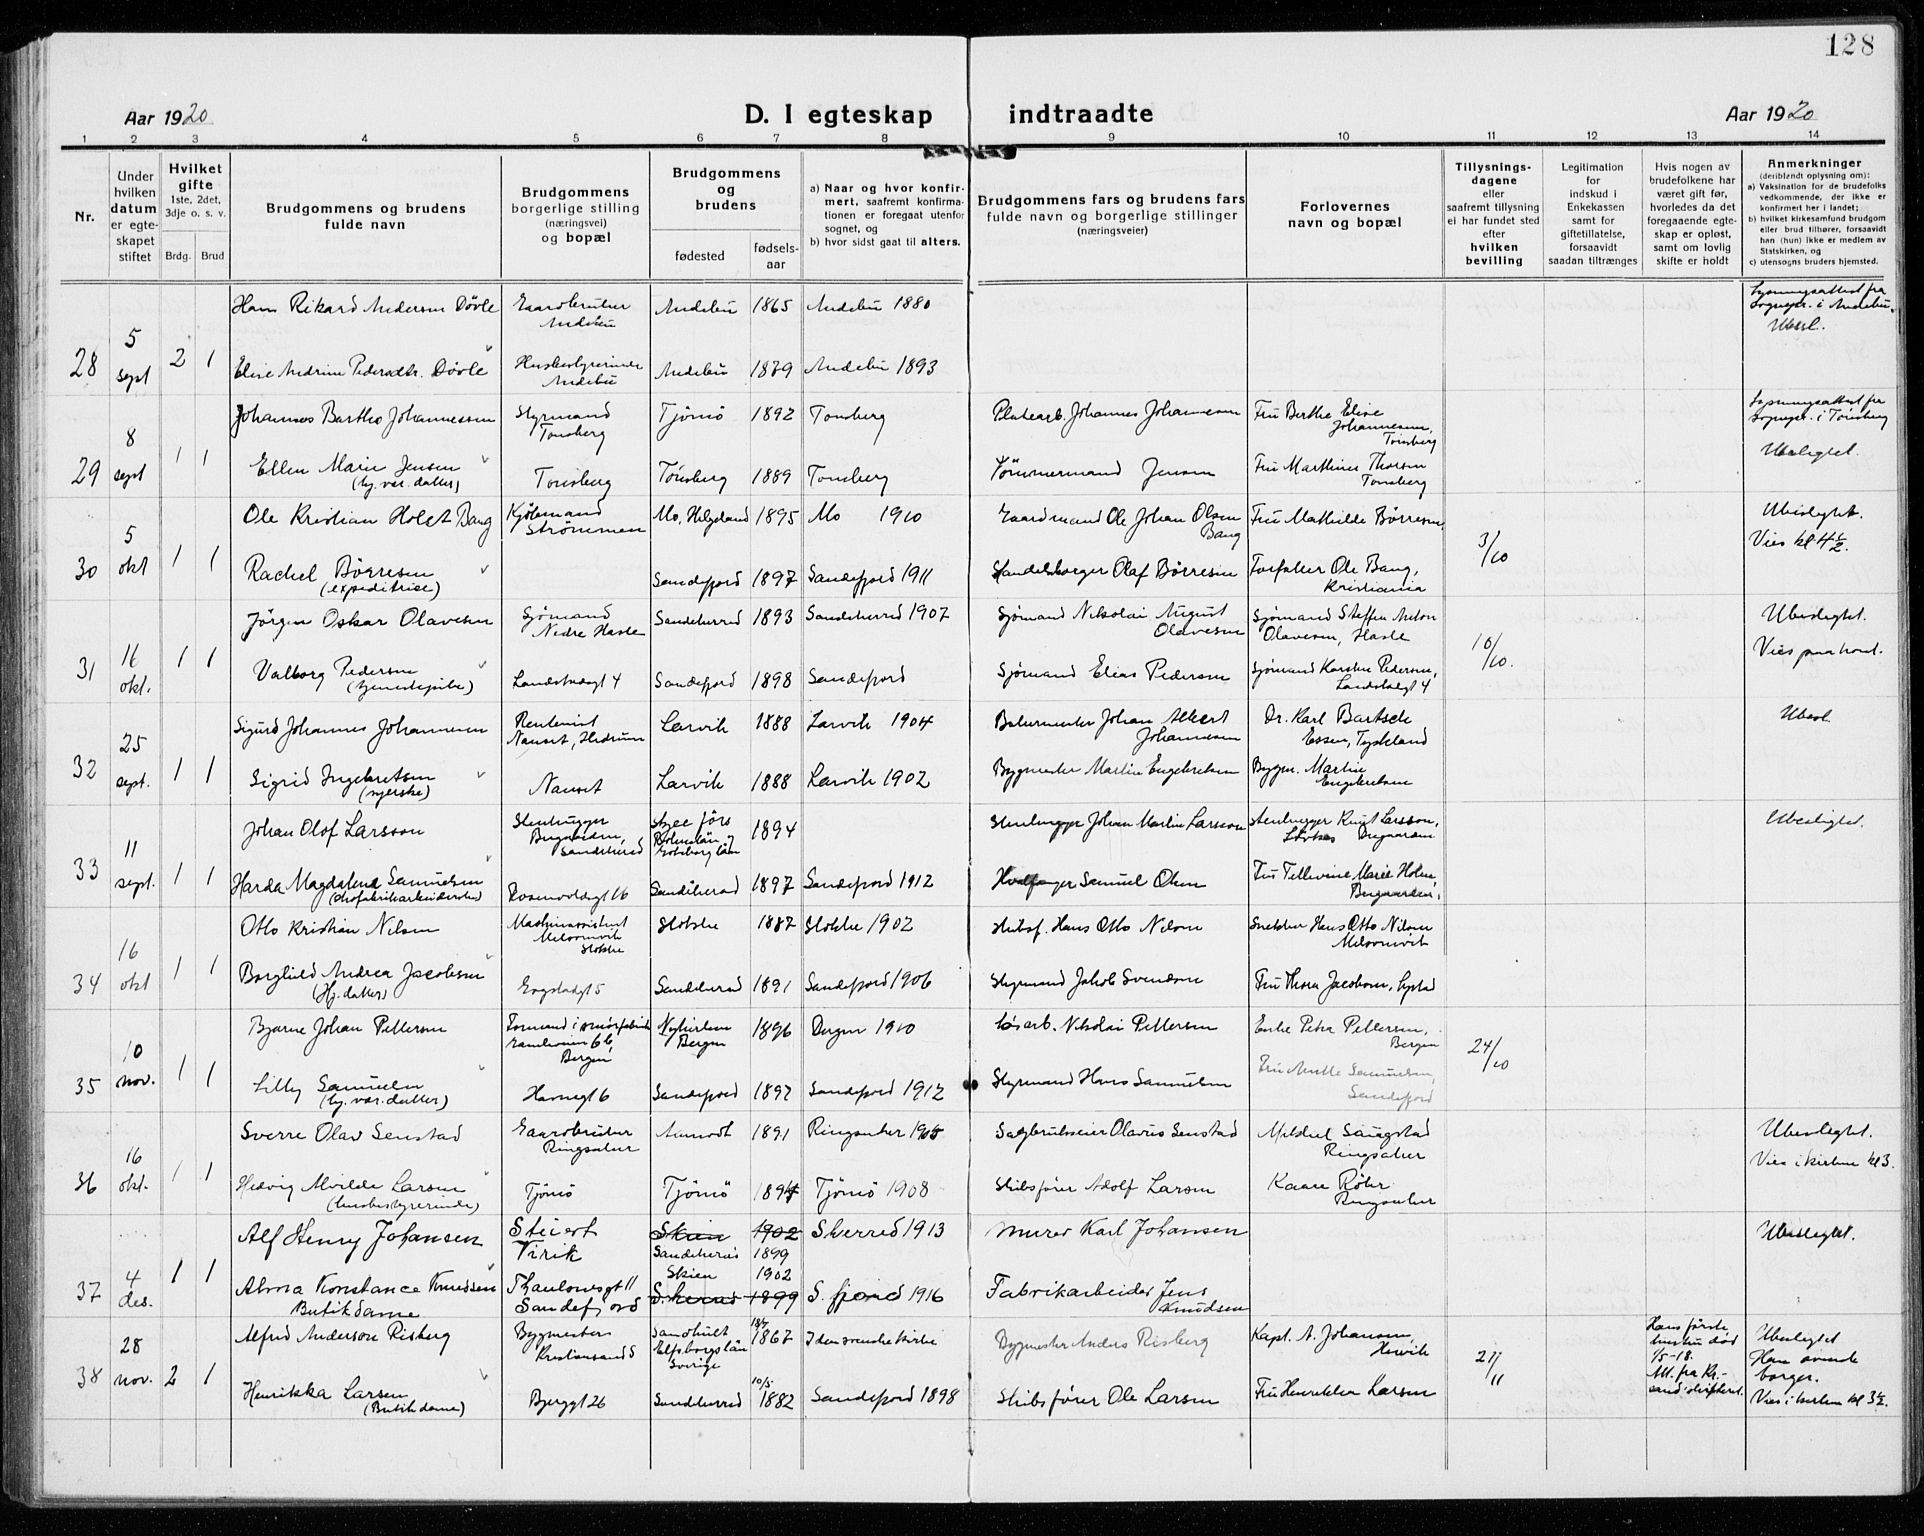 128
Aar 1920
D. I egteskap indtraadte
Aar 1920
1 2 3 4 5 6 7 8 9 10 11 12 13 14
Nr.
Under
hvilken
datum
er egte-
skapet
stiftet
Hvilket
gifte
1ste, 2det,
3dje o. s. v.
Brdg. Brud
Brudgommens og brudens
fulde navn
Brudgommens
borgerlige stilling
(næringsvei)
og bopæl
Brudgommens
og
brudens
fødested
fødsels-
aar
a) Naar og hvor konfir-
mert, saafremt konfirma-
tionen er foregaat utenfor
sognet, og
b) hvor sidst gaat til alters.
Brudgommens fars og brudens fars
fulde navn og borgerlige stillinger
(næringsveier)
Forlovernes
navn og bopæl
Tillysnings-
dagene
eller
saafremt tillysning
ei har fundet sted
efter
hvilken
bevilling
Legitimation
for
indskud i
Enkekassen
samt for
giftetillatelse,
forsaavidt
saadan tiltrænges
Hvis nogen av
brudefolkene har
været gift før,
hvorledes da det
foregaaende egte-
skap er opløst,
samt om lovlig
skifte er holdt
Anmerkninger
(deriblandt oplysning om):
a) Vaksination for de brudefolks
vedkommende, der ikke er
konfirmert her i landet;
b) hvilket kirkesamfund brudgom
eller brud tilhører, forsaavidt
han (hun) ikke er medlem av
Statskirken, og
c) utensogns bruders hjemsted.
28
5
sept
2 1
Hans Rikard Andersen Døvle
Gaardbruker
Andebu
Andebu 1865 Andebu 1880
Lysningsattest fra
Sogнepr. i Andebu.
Ubesl.
Elise Andrine Pedersdtr. Døvle
Husbestyrerinde
Andebu
Andebu 1879 Andebu 1893
29
8
sept
1 1
Johannes Bartho Johannessen
Styrmand
Tønsberg
Tjömö 1892 Tønsberg
Platearb. Johannes Johannesen
Fru Berthe Elise
Johannesen,
Tønsberg
Lysningsattest fra
Sognepr. i Tønsberg
Ubeslegtet.
Ellen Marie Jensen
(hj. vær. datter)
Tønsberg
Tønsberg 1889 Tønsberg
Tömmermand Jensen
Fru Marthine Thorsen
Tønsberg
30
5
okt
1 1
Ole Kristian Holst Bang
Kjøbmand
Strömmen
Mo, Helgeland 1895 Mo 1910
Gaardmand Ole Johan Olsen
Bang
Fru Mathilde Börresen,
3/10
Ubeslegtet.
Vies kl 4 1/2.
Rachel Börresen
(expeditrice)
Sandefjord 1897 Sandefjord 1911
Handelsborger Olaf Börresen
Forfatter Ole Bang,
Kristiania
31
16
okt.
1 1
Jörgen Oskar Olavesen
Sjømand
Nedre Hasle
Sandeherred 1893 Sandeherred 1907
Sjømand Nikolai August
Olavesen
Sjømand Steffen Anton
Olavesen, Hasle
10/10.
Ubeslegtet.
Vies paa kont.
Valborg Pedersen
(tjenestepike)
Landstadsgt 4
Sandefjord 1898 Sandefjord
Sjømand Elias Pedersen
Sjømand Karsten Pedersen,
Landstadgt 4
32
25
sept.
1 1
Sigurd Johannes Johannesen
Rentenist
Nanset, Hedrum
Larvik 1888 Larvik 1904
Bakermester Johan Albert
Johannesen
Dr. Karl Bartsch
Essen, Tyskland
Ubesl.
Sigrid Ingebretsen
(syerske)
Nanset
Larvik 1888 Larvik 1902
Bygmester Martin Engebretsen
Bygm. Martin
Engebretsen
33
11
sept.
1 1
Johan Olof Larsson
Stenhugger
Sandeherred
1894
Stenhugger Johan Martin Larsson
Stenhugger Knut Larsson,
Ubeslegtet.
Harda Magdalena Samuelsen
Rosenvoldsgt 16
Sandeherred 1897 Sandefjord 1912
Hvalfanger Samuel Olsen
Fru Tellevine Marie Holm,
34
16
okt
1 1
Otto Kristian Nilsen
Maskinassistent
Melsomvik
Stokke
Stokke 1887 Stokke 1902
Skibsf. Hans Otto Nilsen
Snekker Hans Otto Nilsen
Melsomvik
Borghild Andrea Jacobsen
(Hj. datter)
Engstadgt 5
Sandeherred 1891 Sandefjord 1906
Styrmand Jakob Svendsen
Fru Thora Jacobsen,
35
10
nov.
1 1
Bjarne Johan Pettersen
Formand i smörfabrik
Bergen
Nykirken
Bergen
1896 Bergen 1910
Løsarb. Nikolai Pettersen
Enke Petra Pettersen,
Bergen
24/10
Lilly Samuelsen
(hj. vær. datter)
Havnegt 6
Sandefjord 1897 Sandefjord 1912
Styrmand Hans Samuelsen
Fru Mille Samuelsen,
Sandefjord
36
16
okt.
1 1
Sverre Olav Senstad
Gaardbruker
Ringsaker
Aamodt 1891 Ringsaker 1905
Sagbrukseier Olavus Senstad
Mildrel Saugstad
Ringsaker
Ubeslegtet.
Vies i kirken kl 3.
Hedvig Alvilde Larsen
(husbestyrerinde)
Tjömö
Tjömö 1894 Tjömö 1908
Skibsfører Adolf Larsen
Kaare Röhr
Ringsaker
37
4
des.
1 1
Alf Henry Johansen
Steiert
Virik
Skien 1902
Sandeherred 1899
S.herred 1913
Murer Karl Johansen
Ubeslegtet.
Alma Konstance Knudsen
Butikdame
Thaulowsgt 11
Sandefjord
Skien 1902
S.herred 1899
S. fjord 1916
Fabrikarbeider Jens
Knudsen
38
28
nov.
2 1
Alfred Anderson Risberg
Bygmester
Kristiansand S
Sandhult
Elfsborgslän
Sverige
1867
I den svenske kirke
Bygmester Anders Risberg
Kapt. A. Johansen,
21/11
Hans første
hustru død
1/5-18.
Att. fra Kr.-
sand skifteret.
Ubeslegtet
Han svensk
borger.
Vies i kirken kl 3 1/2.
Henrikka Larsen
(Butikdame)
Bjerggt 26
Sandeherred
10/5.
1882
Sandefjord 1898
Skibsfører Ole Larsen
Fru Henrikka Larsen